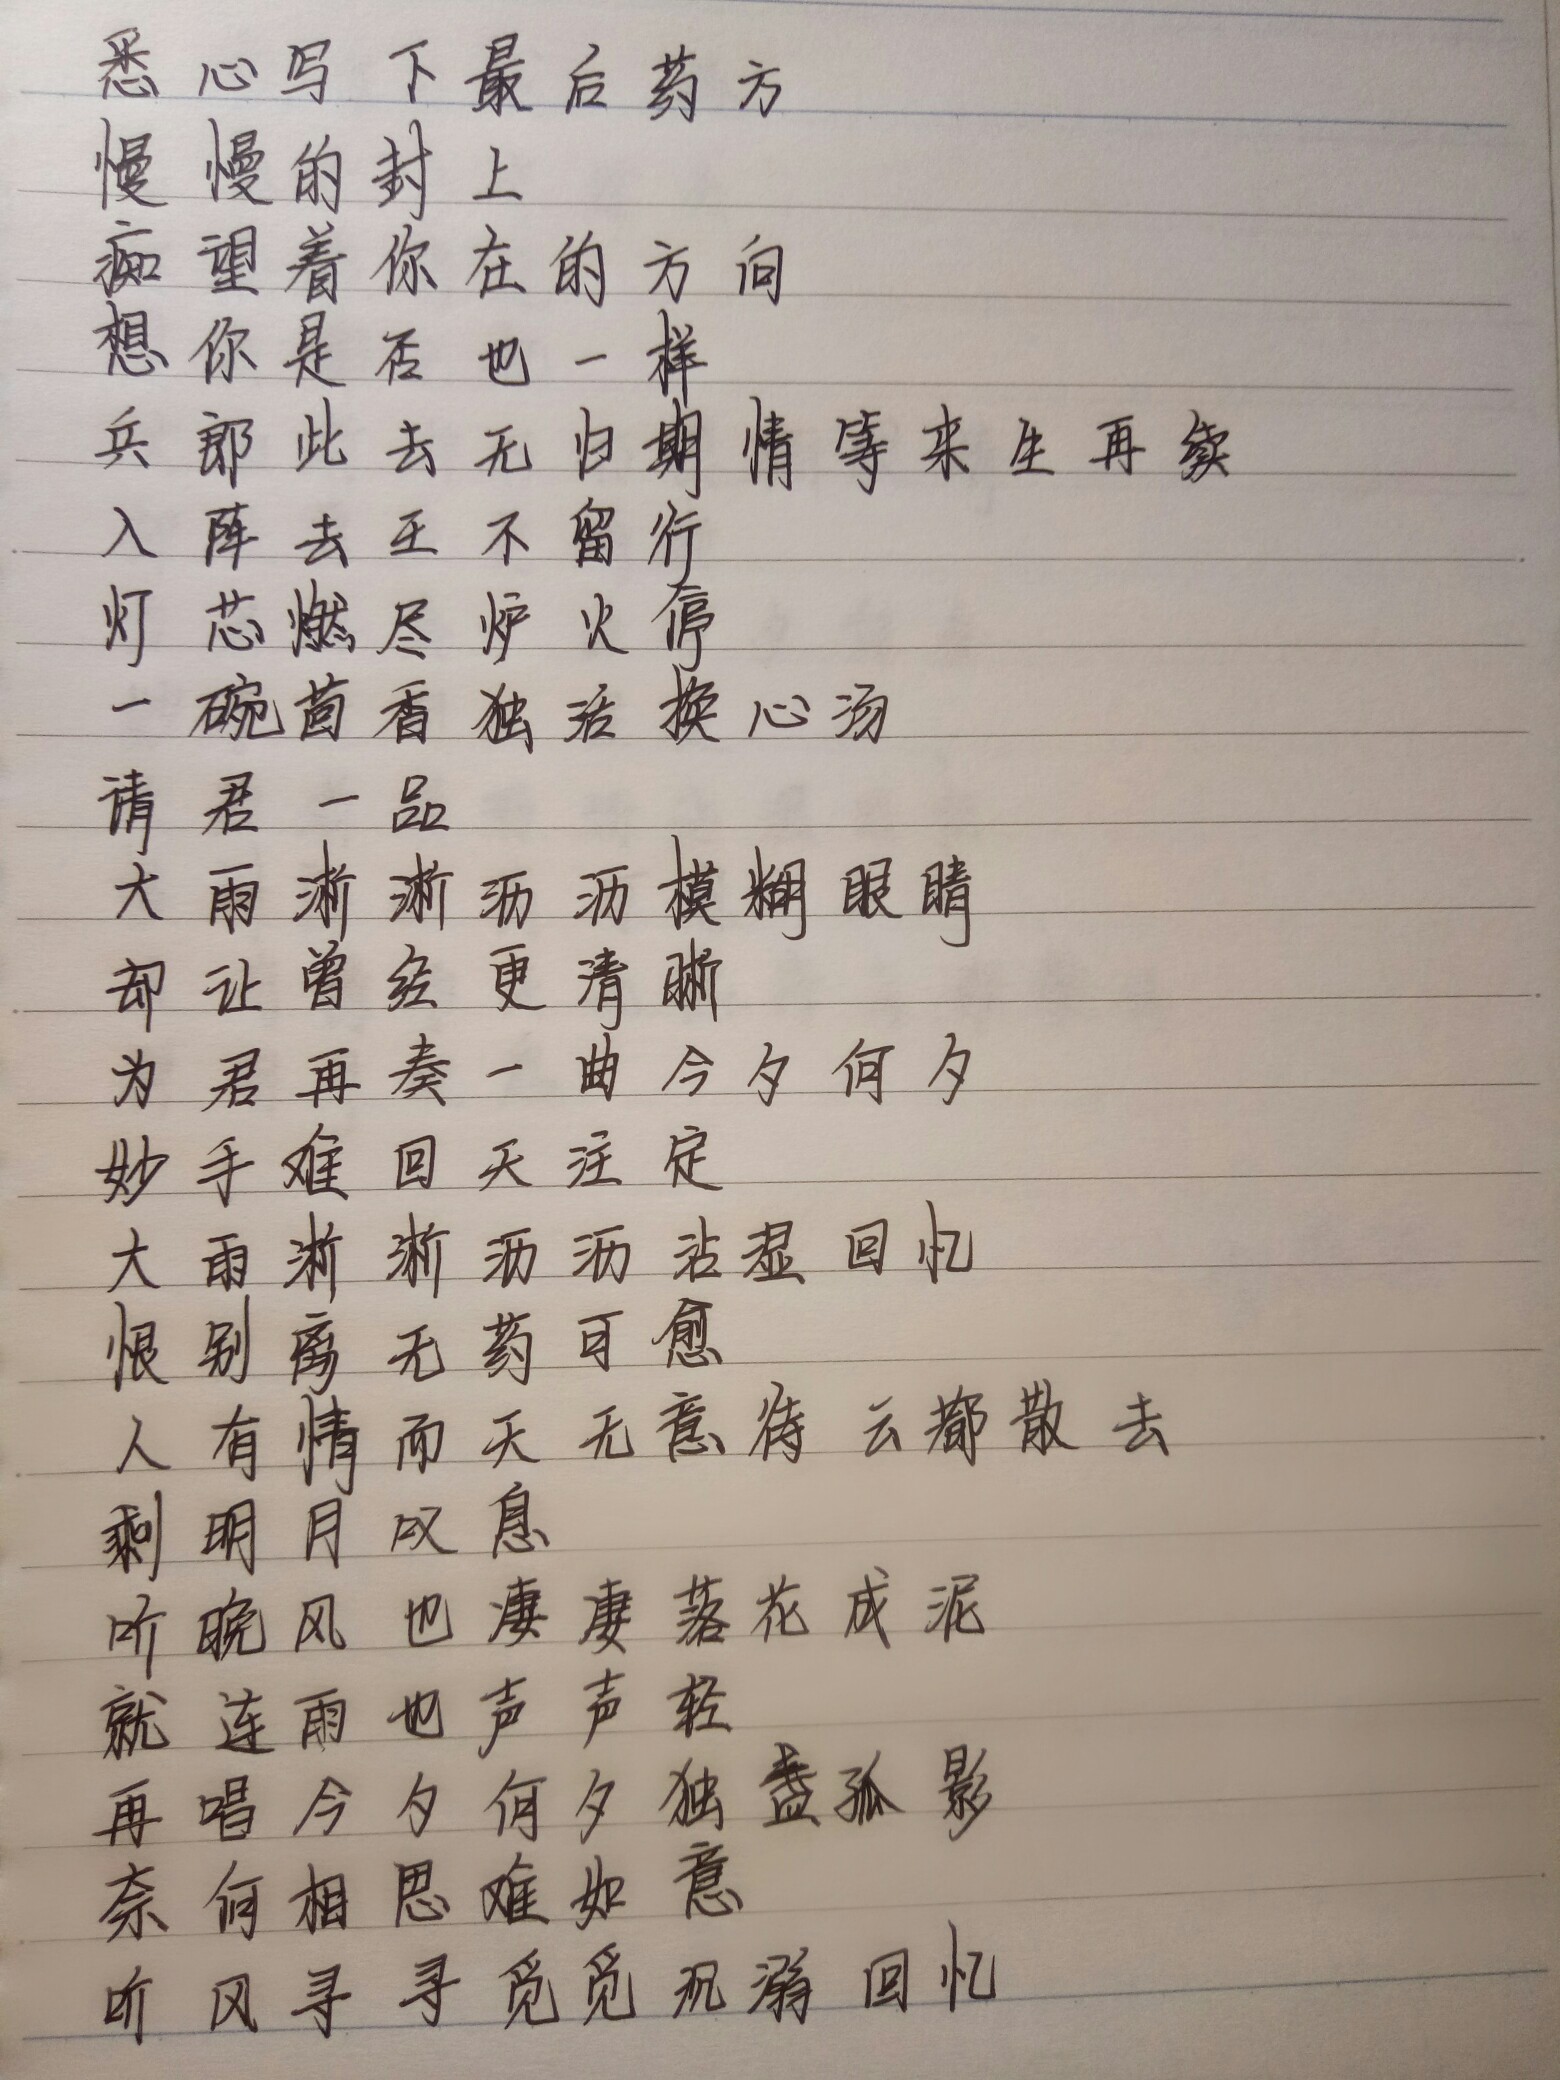 悉心写下最后药方
慢慢的封上
痴望着你在的方向
想你是否也一样
兵郎此去无归期情等来生再续
入阵去王不留行
灯芯燃尽炉火停
一碗茴香独活换心汤
请君一品
大雨淅淅沥沥模糊眼睛
却让曾经更清晰
为君再奏一曲今夕何夕
妙手难回天注定
大雨淅淅沥沥沾湿回忆
恨别离无药可愈
人有情而天无意待云都散去
剩明月叹息
听晚风也凄凄落花成泥
就连雨也声声轻
再唱今夕何夕独盏孤影
奈何相思难如意
听风寻寻觅觅沉溺回忆